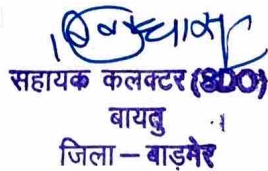 सहायक कलक्टर (SDO)
बायतु
जिला – बाड़मेर